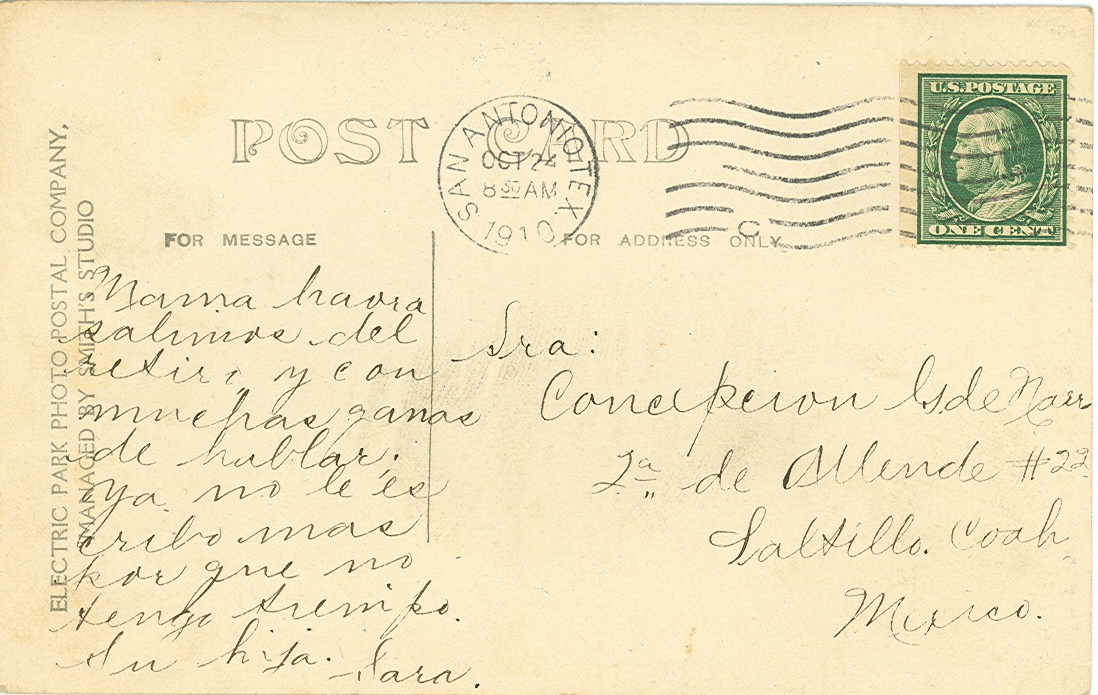 POST CARD
SAN ANTONIO TEX.
OCT 24
8 30 AM
1910
C
U.S. POSTAGE
ONE CENT
ELECTRIC PARK PHOTO POSTAL COMPANY,
MANAGED BY SMITH'S STUDIO
FOR MESSAGE
Mama havra
salimos del
retiro y con
muchas ganas
de hablar.
Ya no le es
cribo mas
por que no
tengo tiempo.
Su hija. Sara.
FOR ADDRESS ONLY
Sra:
Concepcion G de Narr
2a de Allende #22
Saltillo. Coah.
Mexico.